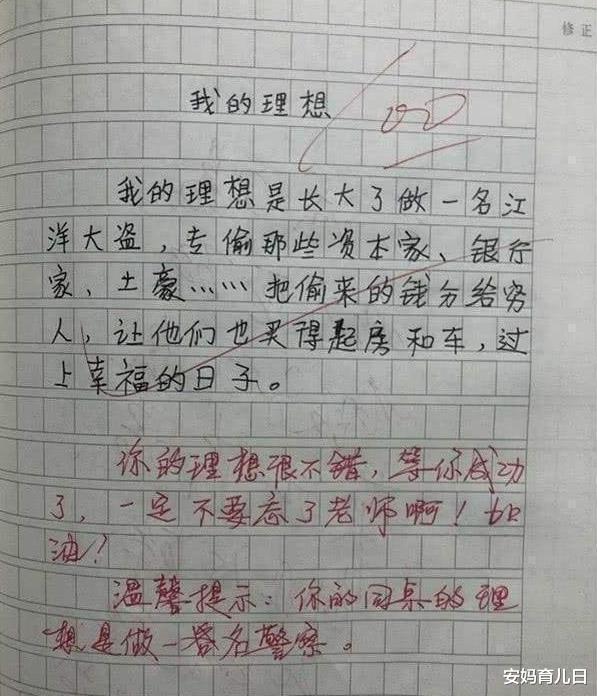 修正
我的理想
100
我的理想是长大了做一名江
洋大盗,专偷那些资本家、银行
家、土豪……把偷来的钱分给穷
人,让他们也买得起房和车,过
上幸福的日子。
你的理想很不错,等你成功
了,一定不要忘了老师啊!加
油!
温馨提示:你的同桌的理
想是做一名警察。
安妈育儿日